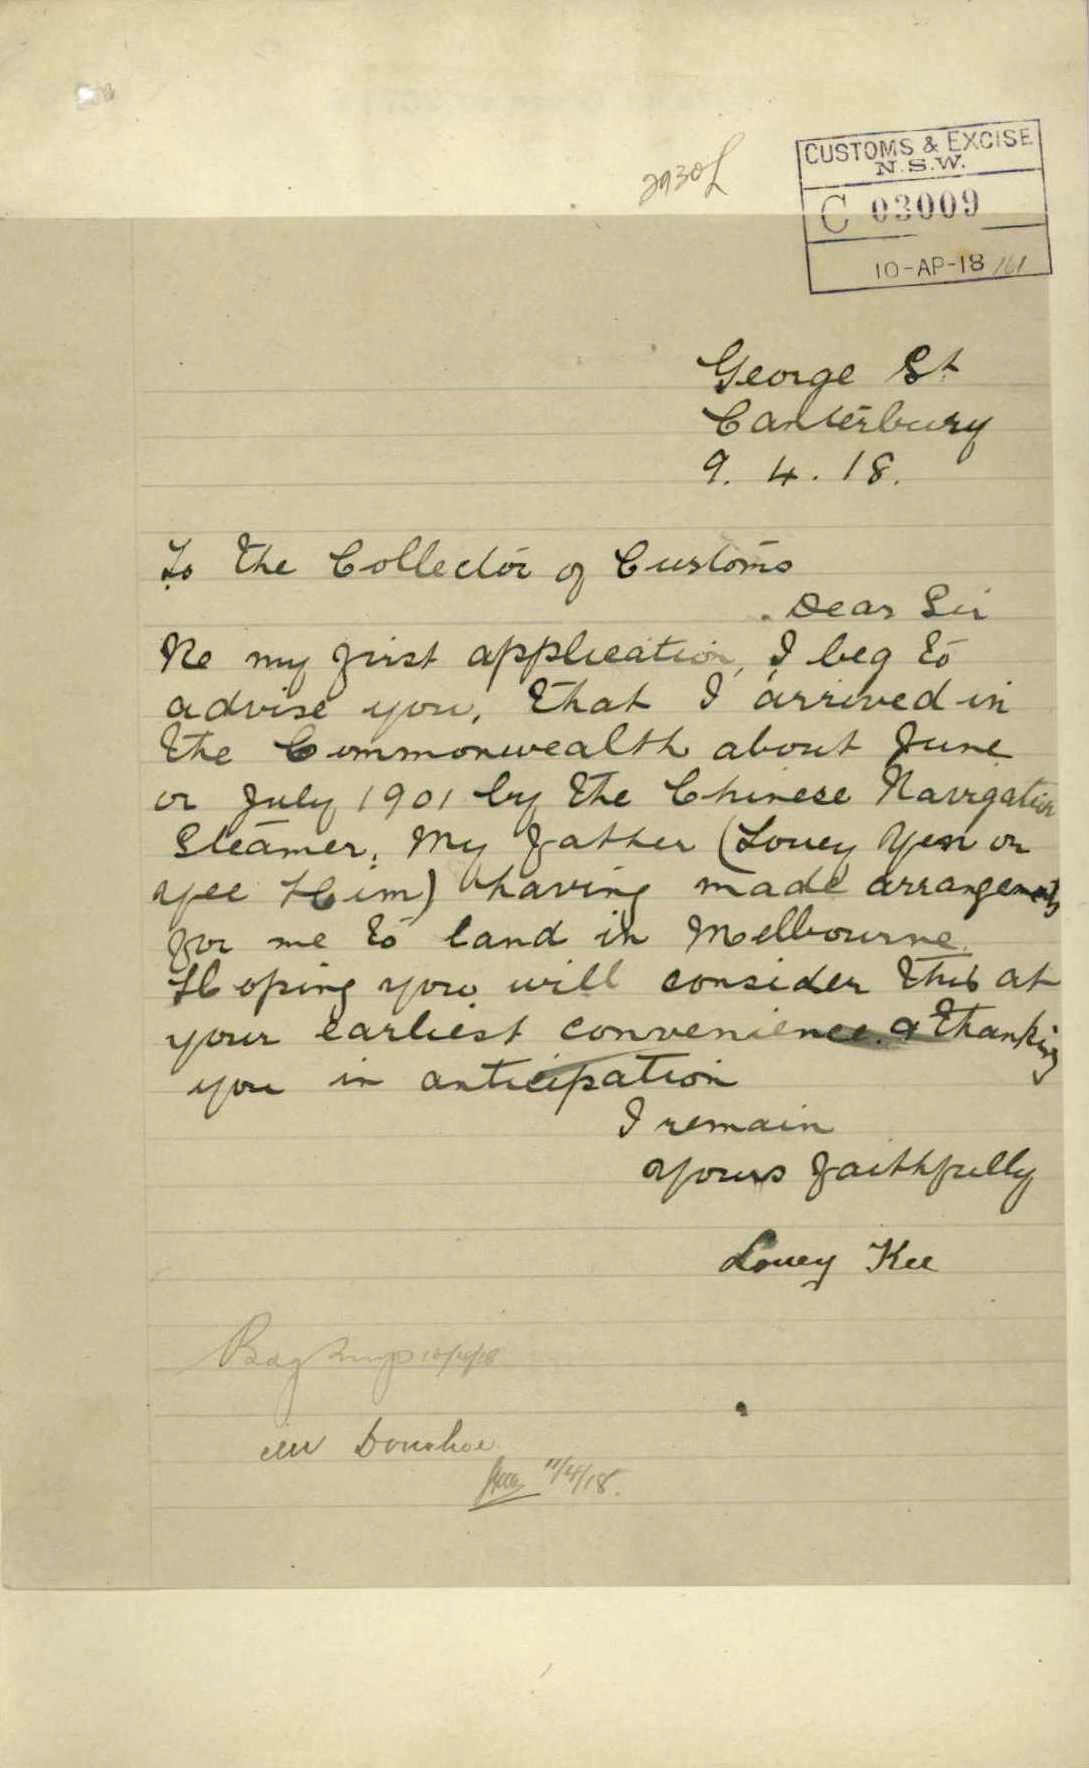 CUSTOMS & EXCISE
N.S.W.
C 03009
10-AP-18
George St
Canterbury
9. 4. 18.
To the Collector of Customs
Dear Sir
Re my first application, I beg to
advise you, that I arrived in
the Commonwealth about June
or July 1901 by the Chinese Navigation
Steamer, My father (Louey Yen or
Yee Him) having made arrangements
for me to land in Melbourne.
Hoping you will consider this at
your earliest convenience & thanking
you in anticipation
I remain
Yours faithfully
Louey Kee
10/4/18
Mr Donohoe
11/4/18.